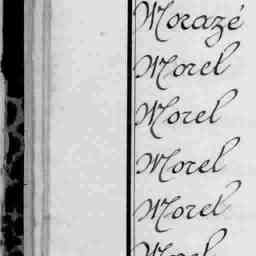 Morazé
Morel
Morel
Morel
Morel
Morel